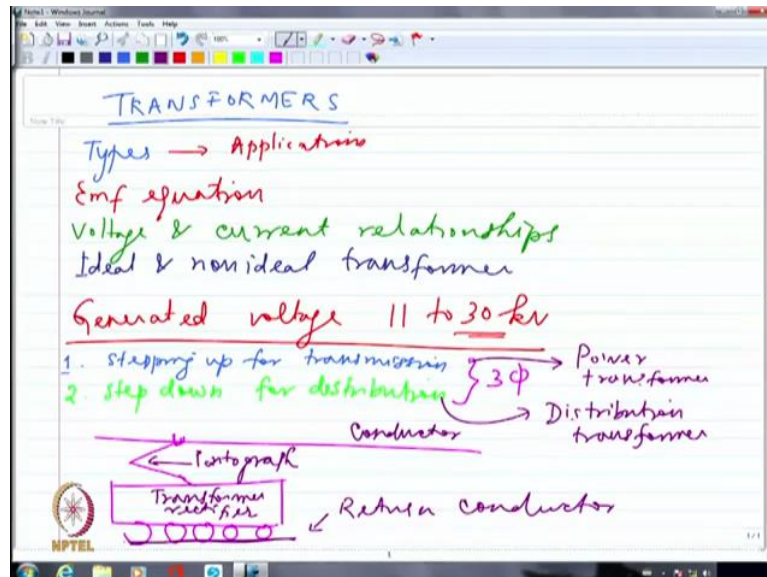 Note1 - Windows Journal
File Edit View Insert Actions Tools Help
100%
B I
Note Title
TRANSFORMERS
Types → Applications
Emf equation
Voltage & current relationships
Ideal & nonideal transformer
Generated voltage 11 to 30 kv
1. Stepping up for transmission } 3φ → Power transformer
2. Step down for distribution → Distribution transformer
Conductor
← Pantograph
Transformer
rectifier
Return conductor
NPTEL
1/1
1